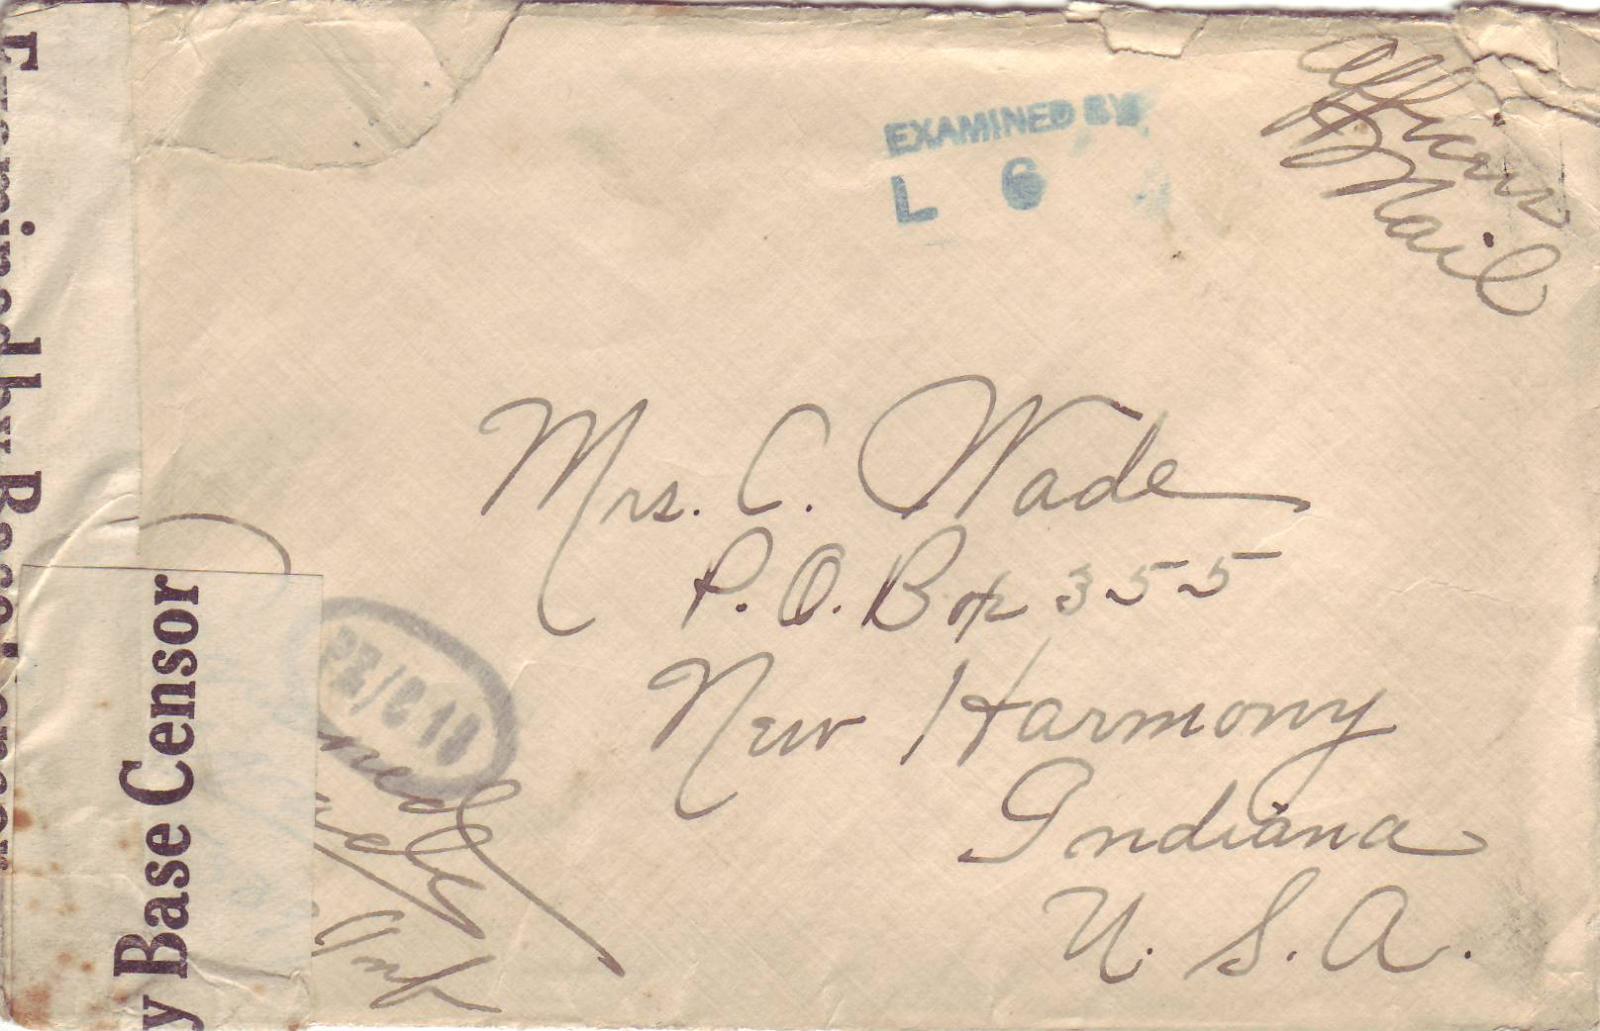 Officers
Mail
EXAMINED BY
L 6
Mrs. C. Wade
P.O. Box 355
New Harmony
Indiana
U. S. A.
Examined by Base Censor
y Base Censor
Inf